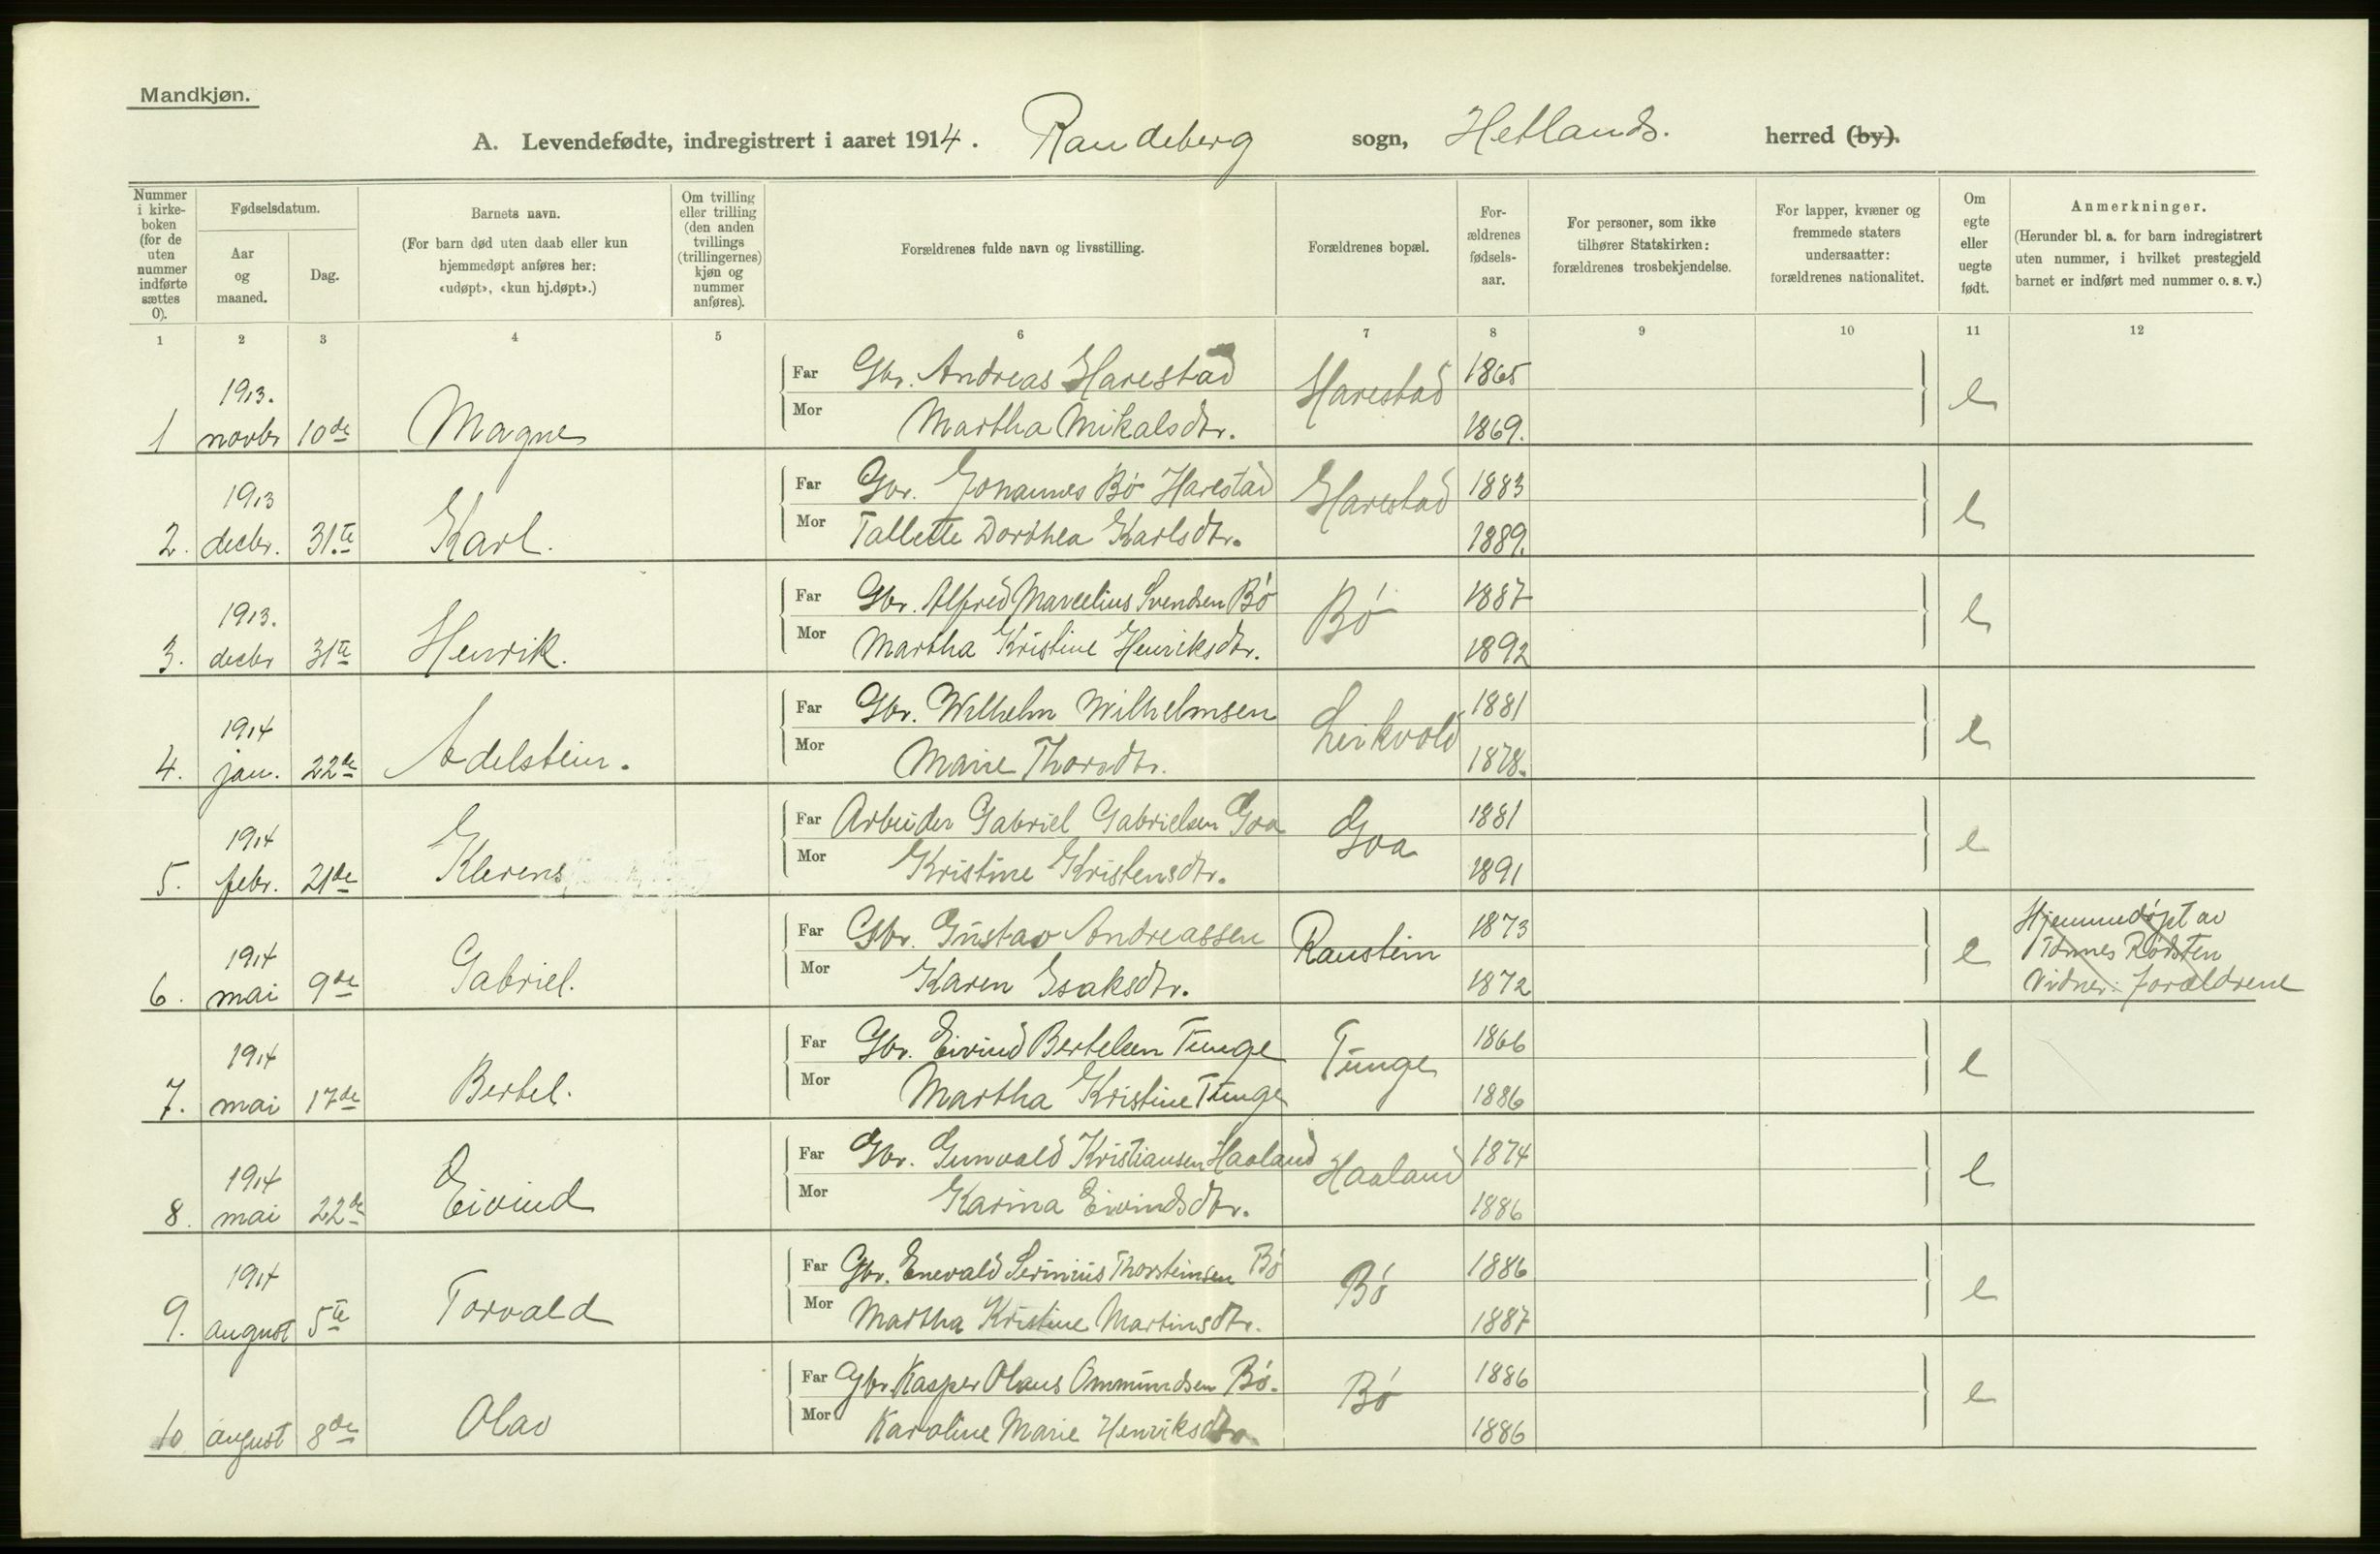 Mandkjøn.
A. Levendefødte, indregistrert i aaret 1914. Randeberg sogn, Hetlands. herred (by).
Nummer i kirke-boken (for de uten nummer indførte sættes 0).
Fødselsdatum.
Aar og maaned.
Dag.
Barnets navn.
(For barn død uten daab eller kun hjemmedøpt anføres her: «udøpt», «kun hj.døpt».)
Om tvilling eller trilling (den anden tvillings (trillingernes) kjøn og nummer anføres).
Forældrenes fulde navn og livsstilling.
Forældrenes bopæl.
For-ældrenes fødsels-aar.
For personer, som ikke tilhører Statskirken: forældrenes trosbekjendelse.
For lapper, kvæner og fremmede staters undersaatter: forældrenes nationalitet.
Om egte eller uegte født.
Anmerkninger.
(Herunder bl. a. for barn indregistrert uten nummer, i hvilket prestegjeld barnet er indført med nummer o. s. v.)
1 2 3 4 5 6 7 8 9 10 11 12
1 1913. novbr 10de Magne Far Gbr. Andreas Harestad Harestad 1865 e
Mor Martha Mikalsdtr. 1869.
2. 1913 decbr. 31.te Karl. Far Gbr. Johannes Bø Harestad Harestad 1883 e
Mor Tallette Dorthea Karlsdtr. 1889.
3. 1913. decbr 31te Henrik. Far Gbr. Alfred Marcelius Svendsen Bø Bø 1887 e
Mor Martha Kristine Henriksdtr. 1892
4. 1914 jan. 22de Adelstein. Far Gbr. Wilhelm Wilhelmsen Leikvold 1881 e
Mor Marie Thorsdtr. 1878.
5. 1914 febr. 21de Klerens Far Arbeider Gabriel Gabrielsen Goa Goa 1881 e
Mor Kristine Kristensdtr. 1891
6. 1914 mai 9de Gabriel. Far Gbr. Gustav Andreassen Raustein 1873 e Hjemmedøpt av
Tønnes Rødsten
Mor Karen Esaksdtr. 1872 Vidner: forældrene
7. 1914 mai 17de Bertel. Far Gbr. Eivind Bertelsen Tunge Tunge 1866 e
Mor Martha Kristine Tunge 1886
8. 1914 mai 22de Eivind Far Gbr. Gunvald Kristiansen Haaland Haaland 1874 e
Mor Karina Eivindsdtr. 1886
9. 1914 august 5te Torvald Far Gbr. Enevald Serinius Thorsteinsen Bø Bø 1886 e
Mor Martha Kristine Martinsdtr. 1887
10 august 8de Olav Far Gbr. Kasper Olaus Ommundsen Bø. Bø 1886 e
Mor Karoline Marie Henriksdtr. 1886